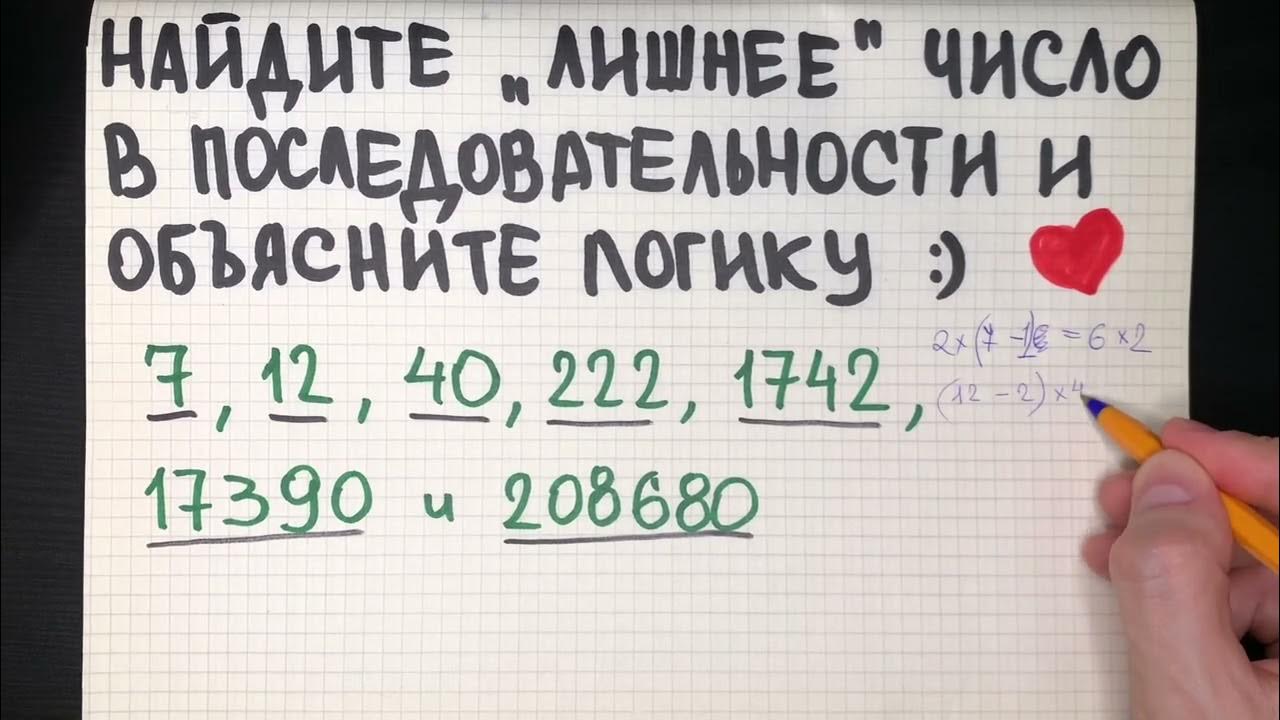 НАЙДИТЕ „ЛИШНЕЕ" ЧИСЛО
В ПОСЛЕДОВАТЕЛЬНОСТИ И
ОБЪЯСНИТЕ ЛОГИКУ :)
7, 12, 40, 222, 1742,
17390 и 208680
2×(7 -1) = 6 ×2
(12 - 2) ×4